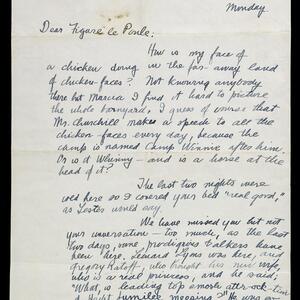 Monday
Dear Figure de Poule:
How is my face of
a chicken doing in the far-away land
of chicken-faces? Not knowing anybody
there but Marcia I find it hard to picture
the whole barnyard, I guess of course that
Mr. Churchill makes a speech to all the
chicken-faces every day, because the
camp is named Camp Winnie after him.
Or is it Whinny - and is a horse at the
head of it?
The last two nights were
cold here so I covered your bed "real good,"
as Lester would say.
We have missed you but not
your conversation - too much, as the last
two days, some prodigious talkers have
been here. Leonard Lyons was here, and
Gregory Ratoff, who brought his new wife,
who is a real princess, and he said,
"What is leading top smosh after-ock-time